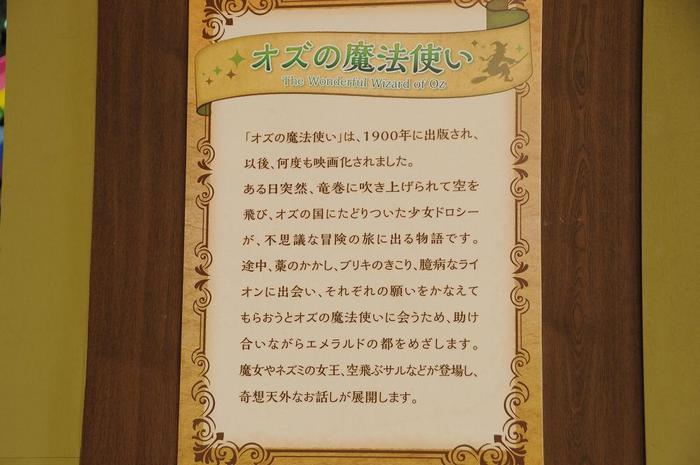 オズの魔法使い
The Wonderful Wizard of Oz
「オズの魔法使い」は、1900年に出版され、
以後、何度も映画化されました。
ある日突然、竜巻に吹き上げられて空を
飛び、オズの国にたどりついた少女ドロシー
が、不思議な冒険の旅に出る物語です。
途中、藁のかかし、ブリキのきこり、臆病なライ
オンに出会い、それぞれの願いをかなえて
もらおうとオズの魔法使いに会うため、助け
合いながらエメラルドの都をめざします。
魔女やネズミの女王、空飛ぶサルなどが登場し、
奇想天外なお話しが展開します。